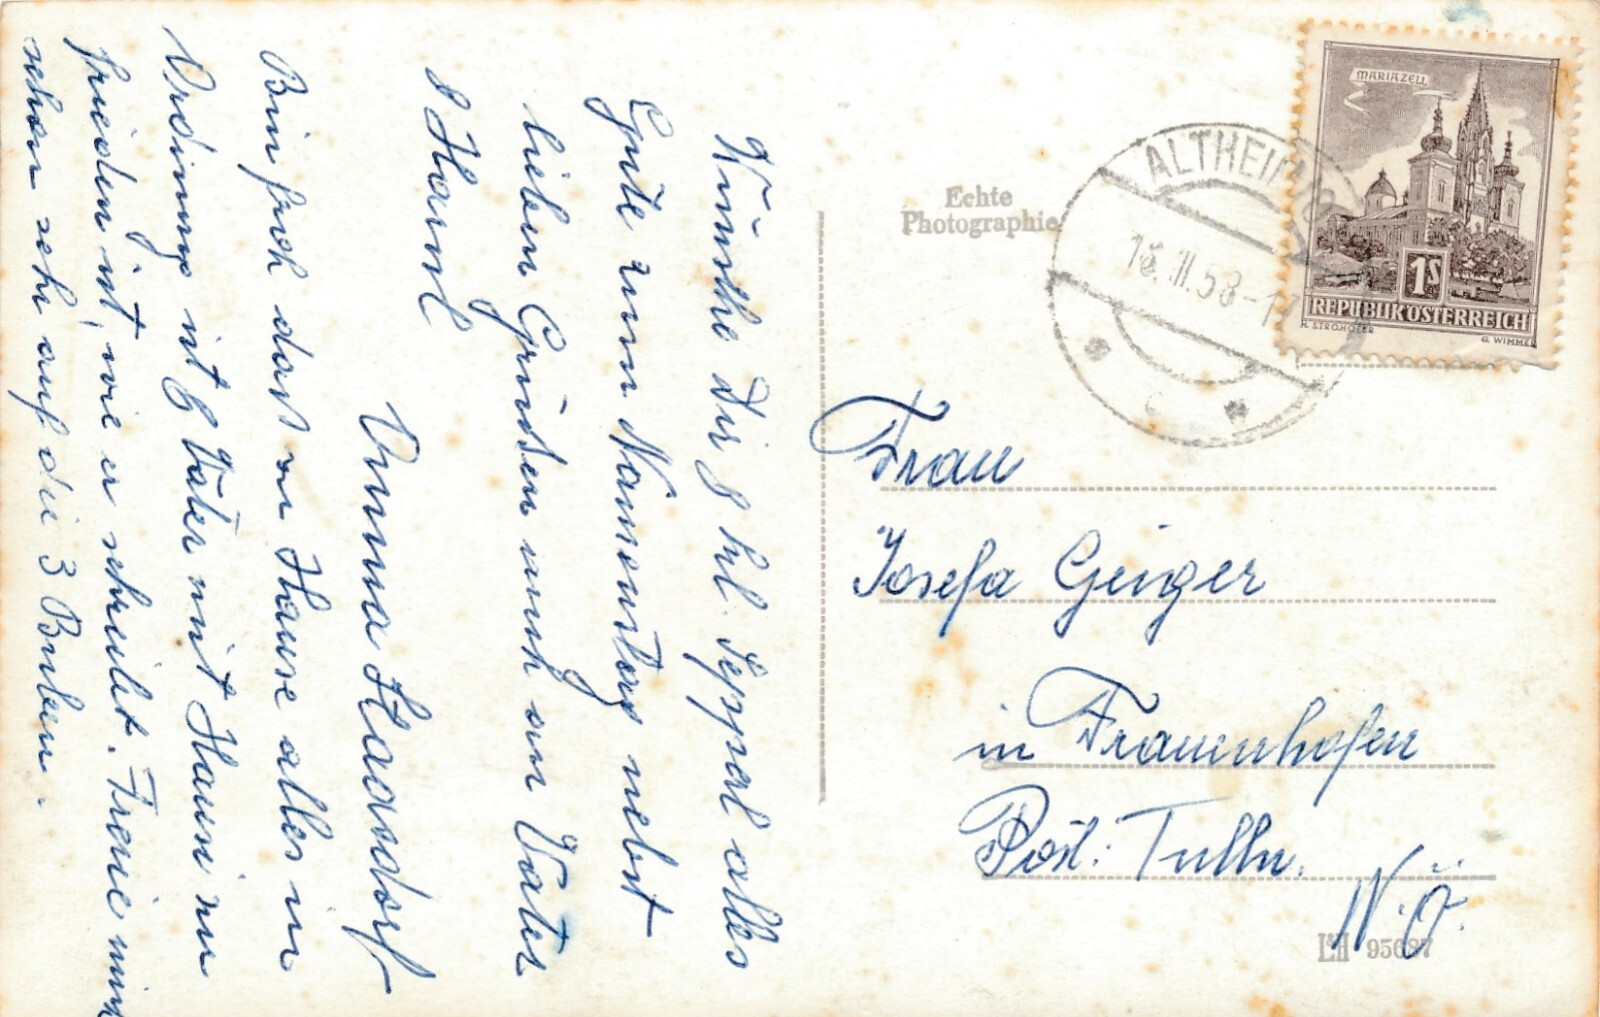 Wünsche Dir z hl. Seppal alles
Gute zum Namenstag nebst
lieben Grüßen auch an Vater
& Hansl
Anna Haasdorf
Bin froh das zu Hause alles in
Ordnung ist & Vater mit Hansi zu
frieden ist, wie er schreibt. Freue mich
schon sehr auf die 3 Buben.
Echte
Photographie
ALTHEIM
18.III.58-17
MARIAZELL
1S
REPUBLIK ÖSTERREICH
R. STROHOFER
G. WIMMER
Frau
Josefa Geiger
in Frauenhofen
Post: Tulln.
N.Ö.
L&H 95687